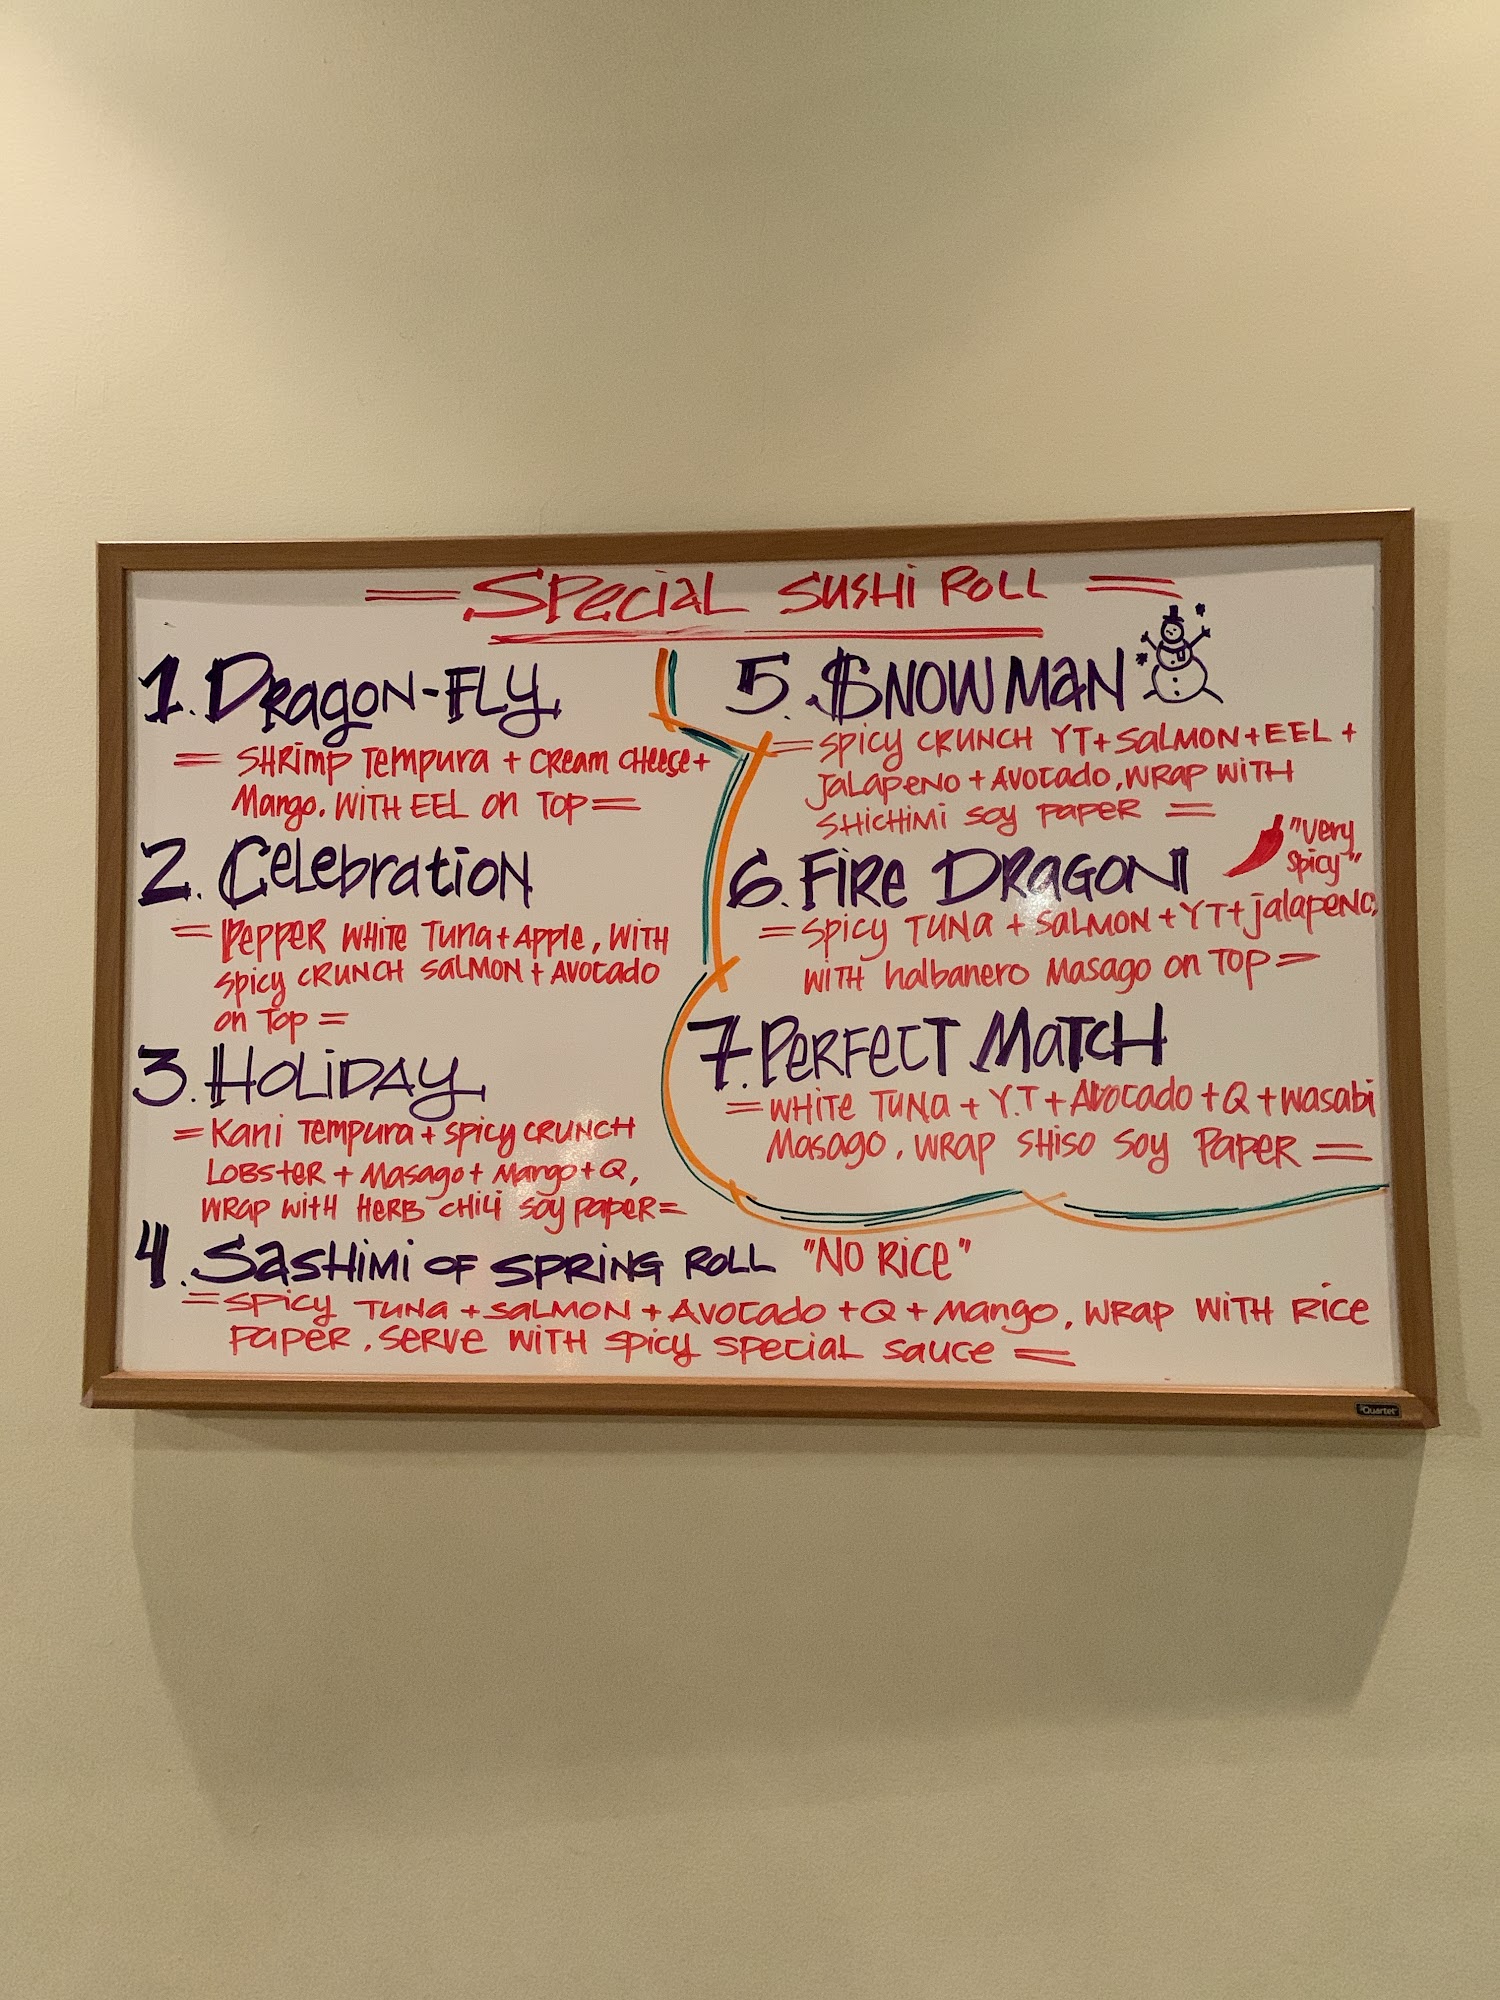 = Special Sushi Roll =
1. Dragon-Fly
= Shrimp Tempura + Cream Cheese +
Mango. With Eel on Top =
2. Celebration
= Pepper White Tuna + Apple, With
Spicy Crunch Salmon + Avocado
on Top =
3. Holiday
= Kani Tempura + Spicy Crunch
Lobster + Masago + Mango + Q,
Wrap With Herb Chili Soy Paper =
4. Sashimi of Spring Roll "No Rice"
= Spicy Tuna + Salmon + Avocado + Q + Mango, Wrap With Rice
Paper, Serve With Spicy Special Sauce =
5. Snowman
= Spicy Crunch YT + Salmon + Eel +
Jalapeno + Avocado, Wrap With
Shichimi Soy Paper =
6. Fire Dragon "Very
Spicy"
= Spicy Tuna + Salmon + YT + Jalapeno,
With halbanero Masago on Top =
7. Perfect Match
= White Tuna + Y.T + Avocado + Q + Wasabi
Masago, Wrap Shiso Soy Paper =
Quartet